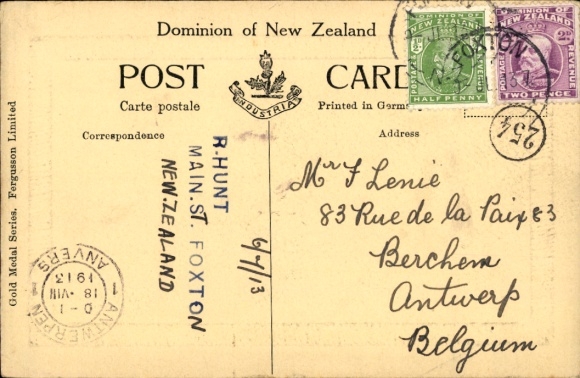 Dominion of New Zealand
POST CARD
Carte postale
Printed in Germ
INDUSTRIA
Correspondence
Address
Gold Medal Series. Fergusson Limited
R. HUNT
MAIN. ST. FOXTON
NEW.ZEALAND
6/7/13
Mr F Lenie
83 Rue de la Paix 83
Berchem
Antwerp
Belgium
DOMINION OF
NEW ZEALAND
POSTAGE
REVENUE
HALF PENNY
DOMINION OF
NEW ZEALAND
2D
POSTAGE
REVENUE
TWO PENCE
FOXTON
254
ANTWERPEN 1
D-1
18 · VIII
1913
ANVERS 1